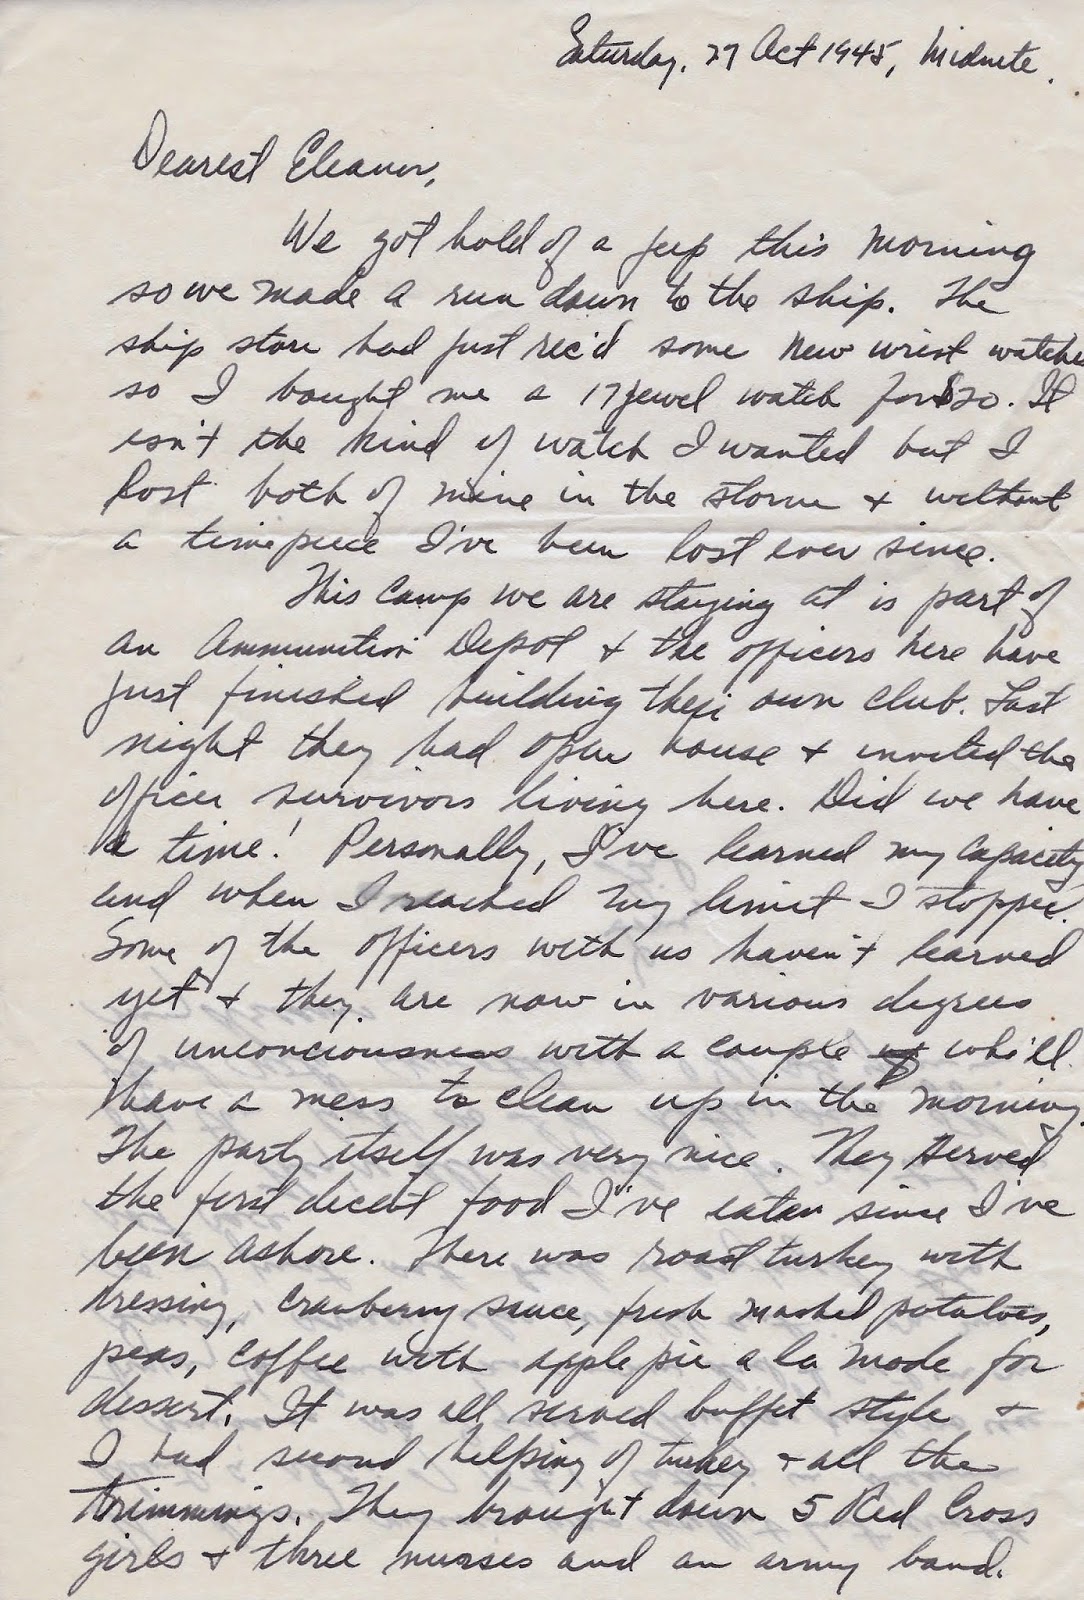 Saturday, 27 Oct 1945, Midnite.
Dearest Eleanor,
We got hold of a jeep this morning
so we made a run down to the ship. The
ship store had just rec'd some new wrist watches
so I bought me a 17 jewel watch for $20. It
isn't the kind of watch I wanted but I
lost both of mine in the storm & without
a timepiece I've been lost ever since.
This camp we are staying at is part of
an Ammunition Depot & the officers here have
just finished building their own club. Last
night they had open house & invited the
officer survivors living here. Did we have
a time! Personally, I've learned my capacity
and when I reached my limit I stopped.
Some of the officers with us haven't learned
yet & they are now in various degrees
of unconciousness with a couple who'll
have a mess to clean up in the morning.
The party itself was very nice. They served
the first decent food I've eaten since I've
been ashore. There was roast turkey with
dressing, cranberry sauce, fresh mashed potatoes,
peas, coffee with apple pie a la mode for
dessert. It was all served buffet style &
I had second helping of turkey & all the
trimmings. They brought down 5 Red Cross
girls & three nurses and an army band.